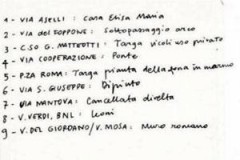 1 - VIA ASELLI : Casa Elisa Maria
2 - VIA DEL TOPPONE : Sottopassaggio arco
3 - C.SO G. MATTEOTTI : Targa vicolo uso privato
4 - VIA COOPERAZIONE : Ponte
5 - P.ZA ROMA : Targa pianta della in marmo
6 - VIA S. GIUSEPPE : Dipinto
7 - VIA MANTOVA : Cancellata divelta
8 - V. VERDI, BNL : Leoni
9 - V. DEL GIORDANO / V. MOSA : Muro romano